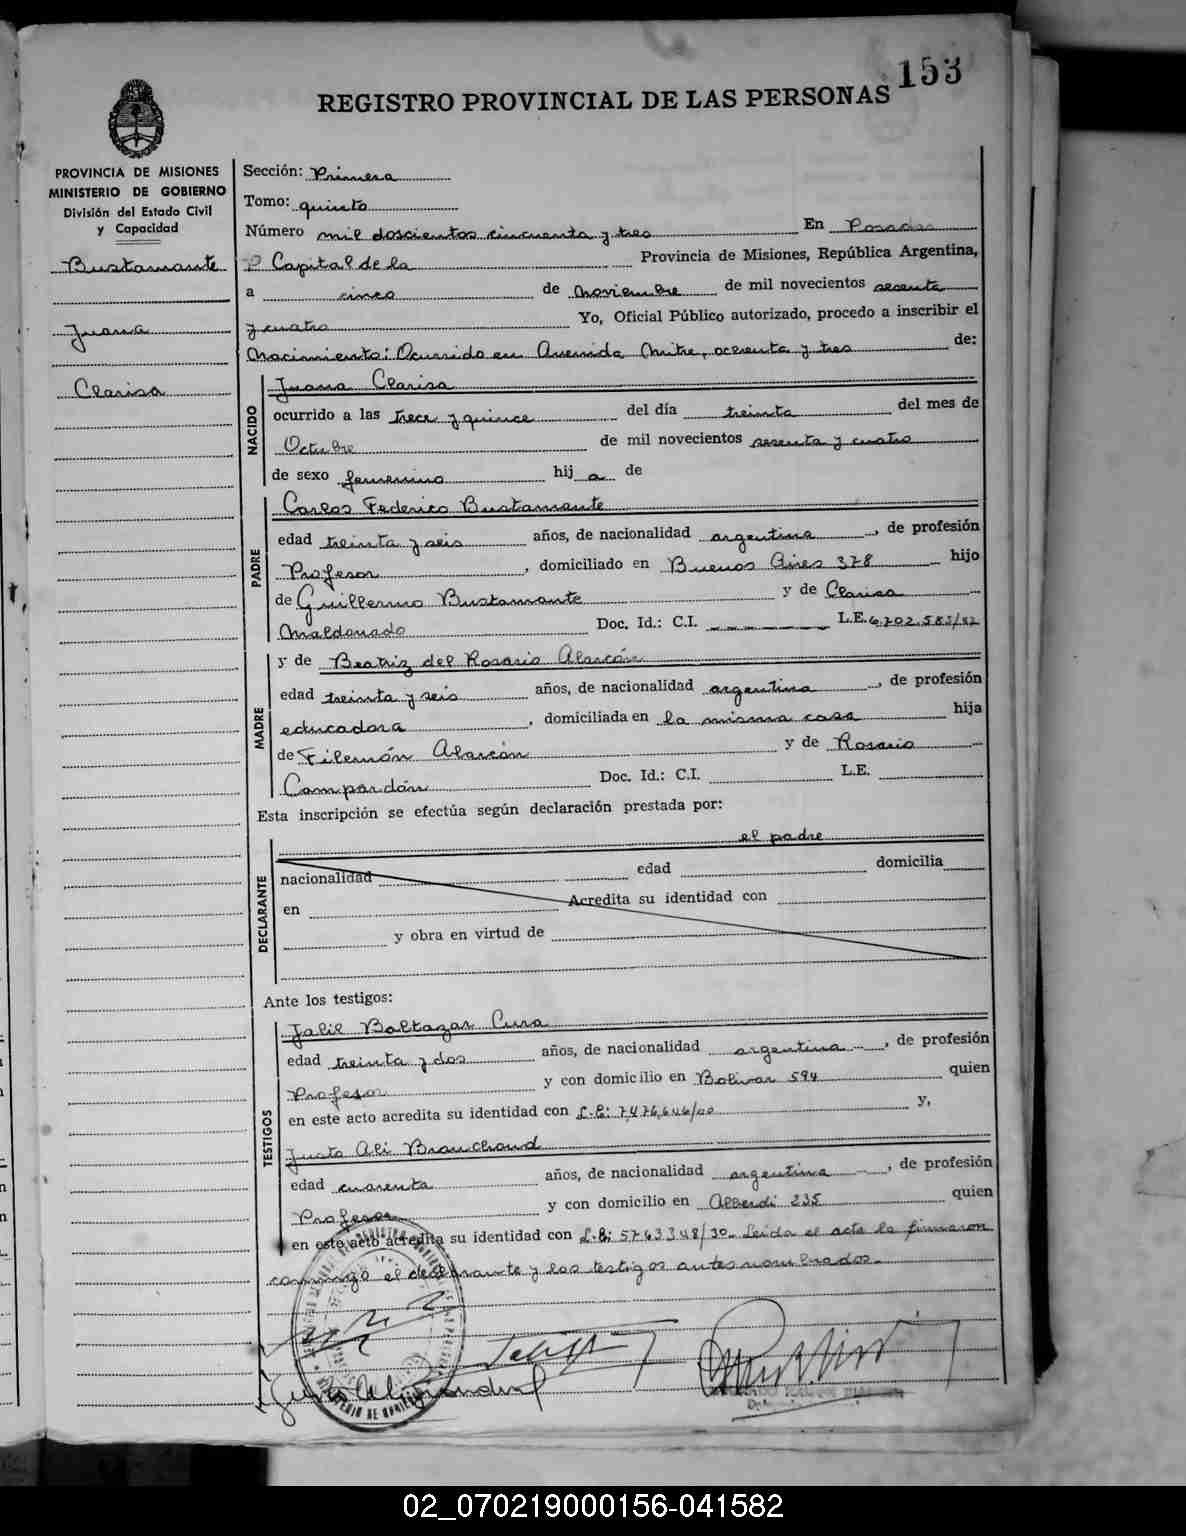 153
REGISTRO PROVINCIAL DE LAS PERSONAS
PROVINCIA DE MISIONES
MINISTERIO DE GOBIERNO
División del Estado Civil
y Capacidad
Bustamante
Juana
Clarisa
Sección: Primera
Tomo: quinto
Número mil doscientos cincuenta y tres En Posadas
Capital de la Provincia de Misiones, República Argentina,
a cinco de Noviembre de mil novecientos sesenta
y cuatro Yo, Oficial Público autorizado, procedo a inscribir el
Nacimiento: Ocurrido en Avenida Mitre, ochenta y tres de:
NACIDO
Juana Clarisa
ocurrido a las trece y quince del día treinta del mes de
Octubre de mil novecientos sesenta y cuatro
de sexo femenino hij a de
PADRE
Carlos Federico Bustamante
edad treinta y seis años, de nacionalidad argentina, de profesión
Profesor, domiciliado en Buenos Aires 378 hijo
de Guillermo Bustamante y de Clarisa
Maldonado Doc. Id.: C.I. L.E. 6.702.583/82
MADRE
y de Beatriz del Rosario Alarcón
edad treinta y seis años, de nacionalidad argentina, de profesión
educadora, domiciliada en la misma casa hija
de Filemón Alarcón y de Rosario
Campardón Doc. Id.: C.I. L.E.
Esta inscripción se efectúa según declaración prestada por:
DECLARANTE
el padre
nacionalidad edad domicilia
en Acredita su identidad con
y obra en virtud de
Ante los testigos:
TESTIGOS
Jalil Baltazar Cura
edad treinta y dos años, de nacionalidad argentina, de profesión
Profesor y con domicilio en Bolívar 594 quien
en este acto acredita su identidad con L.E: 7.476.646/00 y,
Justo Ali Brauchoud
edad cuarenta años, de nacionalidad argentina, de profesión
Profesor y con domicilio en Alberdi 235 quien
en este acto acredita su identidad con L.E: 5763348/30. Leída el acta la firmaron
conmigo el declarante y los testigos antes nombrados.
02_070219000156-041582